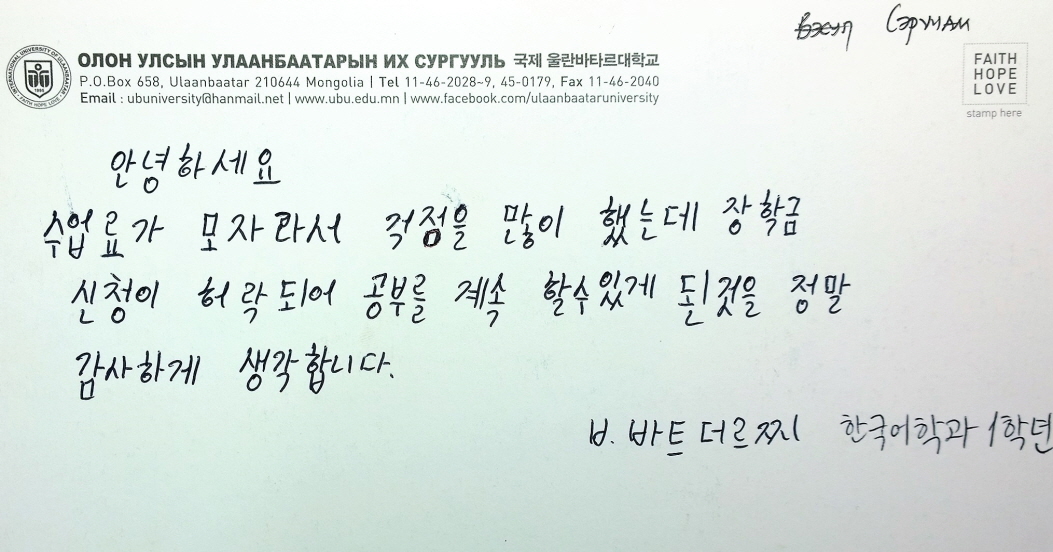 Сэрчмаа
ОЛОН УЛСЫН УЛААНБААТАРЫН ИХ СУРГУУЛЬ 국제 울란바타르대학교
P.O.Box 658, Ulaanbaatar 210644 Mongolia | Tel 11-46-2028~9, 45-0179, Fax 11-46-2040
Email : ubuniversity@hanmail.net | www.ubu.edu.mn | www.facebook.com/ulaanbaataruniversity
INTERNATIONAL UNIVERSITY OF ULAANBAATAR
1995
FAITH HOPE LOVE
FAITH
HOPE
LOVE
stamp here
안녕하세요
수업료가 모자라서 걱정을 많이 했는데 장학금
신청이 허락되어 공부를 계속 할수있게 된것을 정말
감사하게 생각합니다.
바트 더르찌 한국어학과 1학년